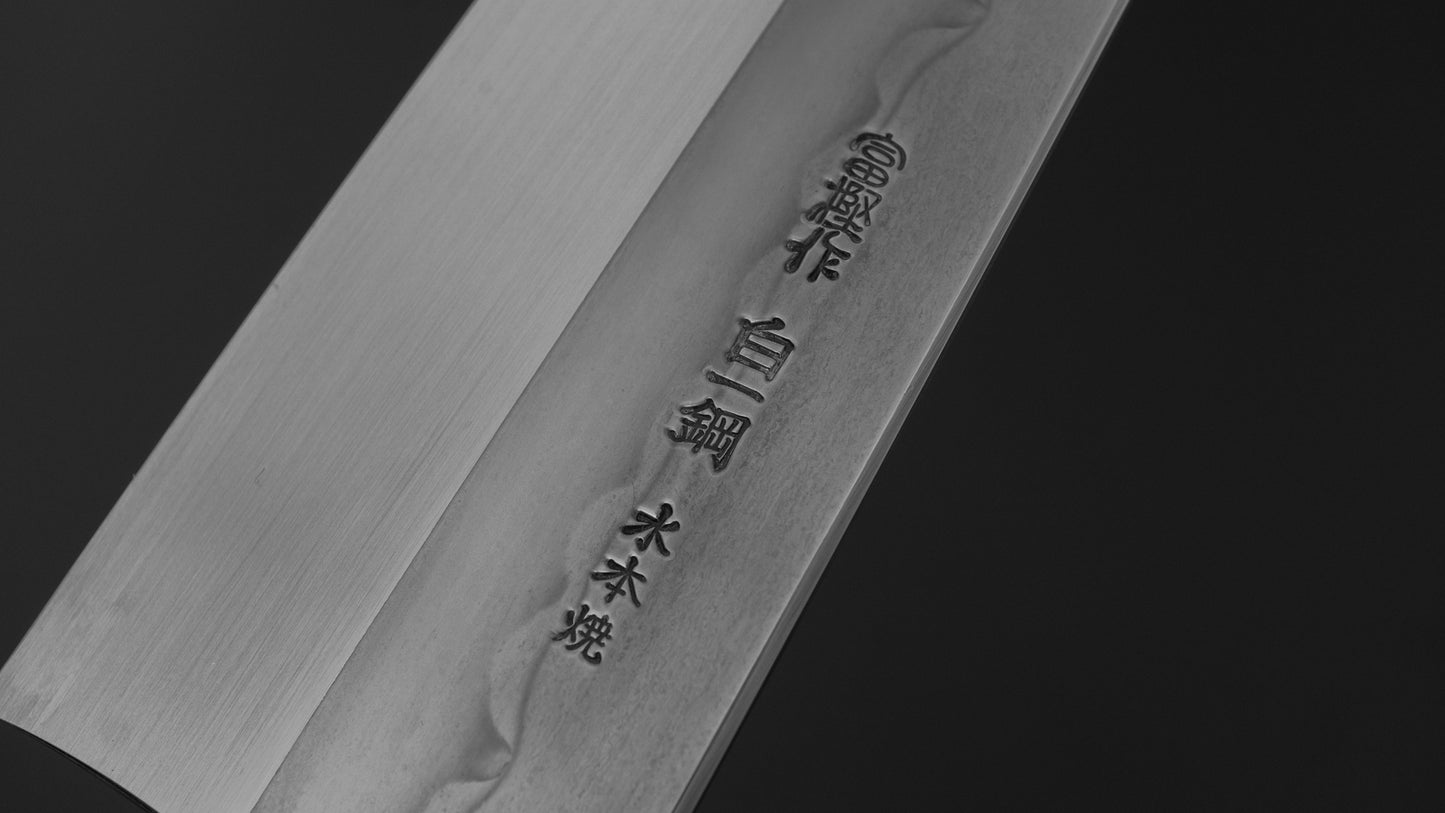 富樫作 白一鋼 水本焼